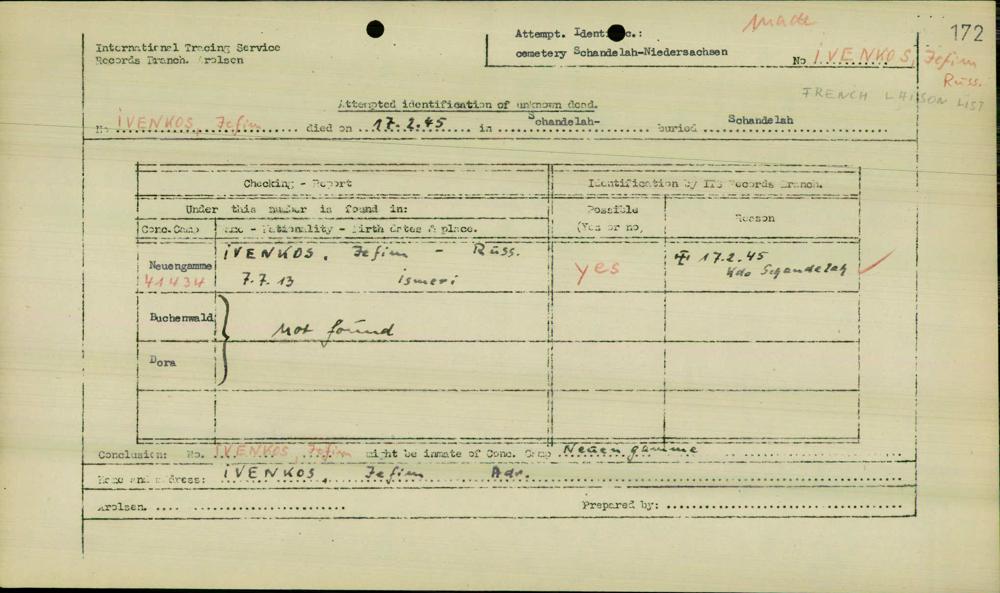 made
172
International Tracing Service
Records Branch. Arolsen
Attempt. Ident. c.:
cemetery Schandelah-Niedersachsen
No IVENKOS, Jefim
Russ.
FRENCH LIAISON LIST
Attempted identification of unknown dead.
No IVENKOS, Jefim died on 17.2.45 in Schandelah- buried Schandelah
Checking - Report
Identification by ITS Records Branch.
Under this number is found in:
Possible (Yes or no,
Reason
Conc.Camp
Name - Nationality - Birth dates & place.
Neuengamme 41434
IVENKOS, Jefim - Russ.
7.7.13 ismeri
yes
17.2.45
Kdo Schandelah
Buchenwald
Not found
Dora
Conclusion: No. IVENKOS, Jefim might be inmate of Conc. Camp Neuengamme
Name and address: IVENKOS, Jefim Adr.
Arolsen.
Prepared by: